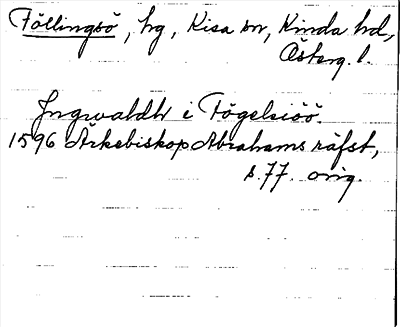 Föllingsö, hg, Kisa sn, Kinda hd,
Österg. l.
Jngwaldh i Fögelsiöö.
1596 Ärkebiskop Abrahams räfst,
s. 77. orig.